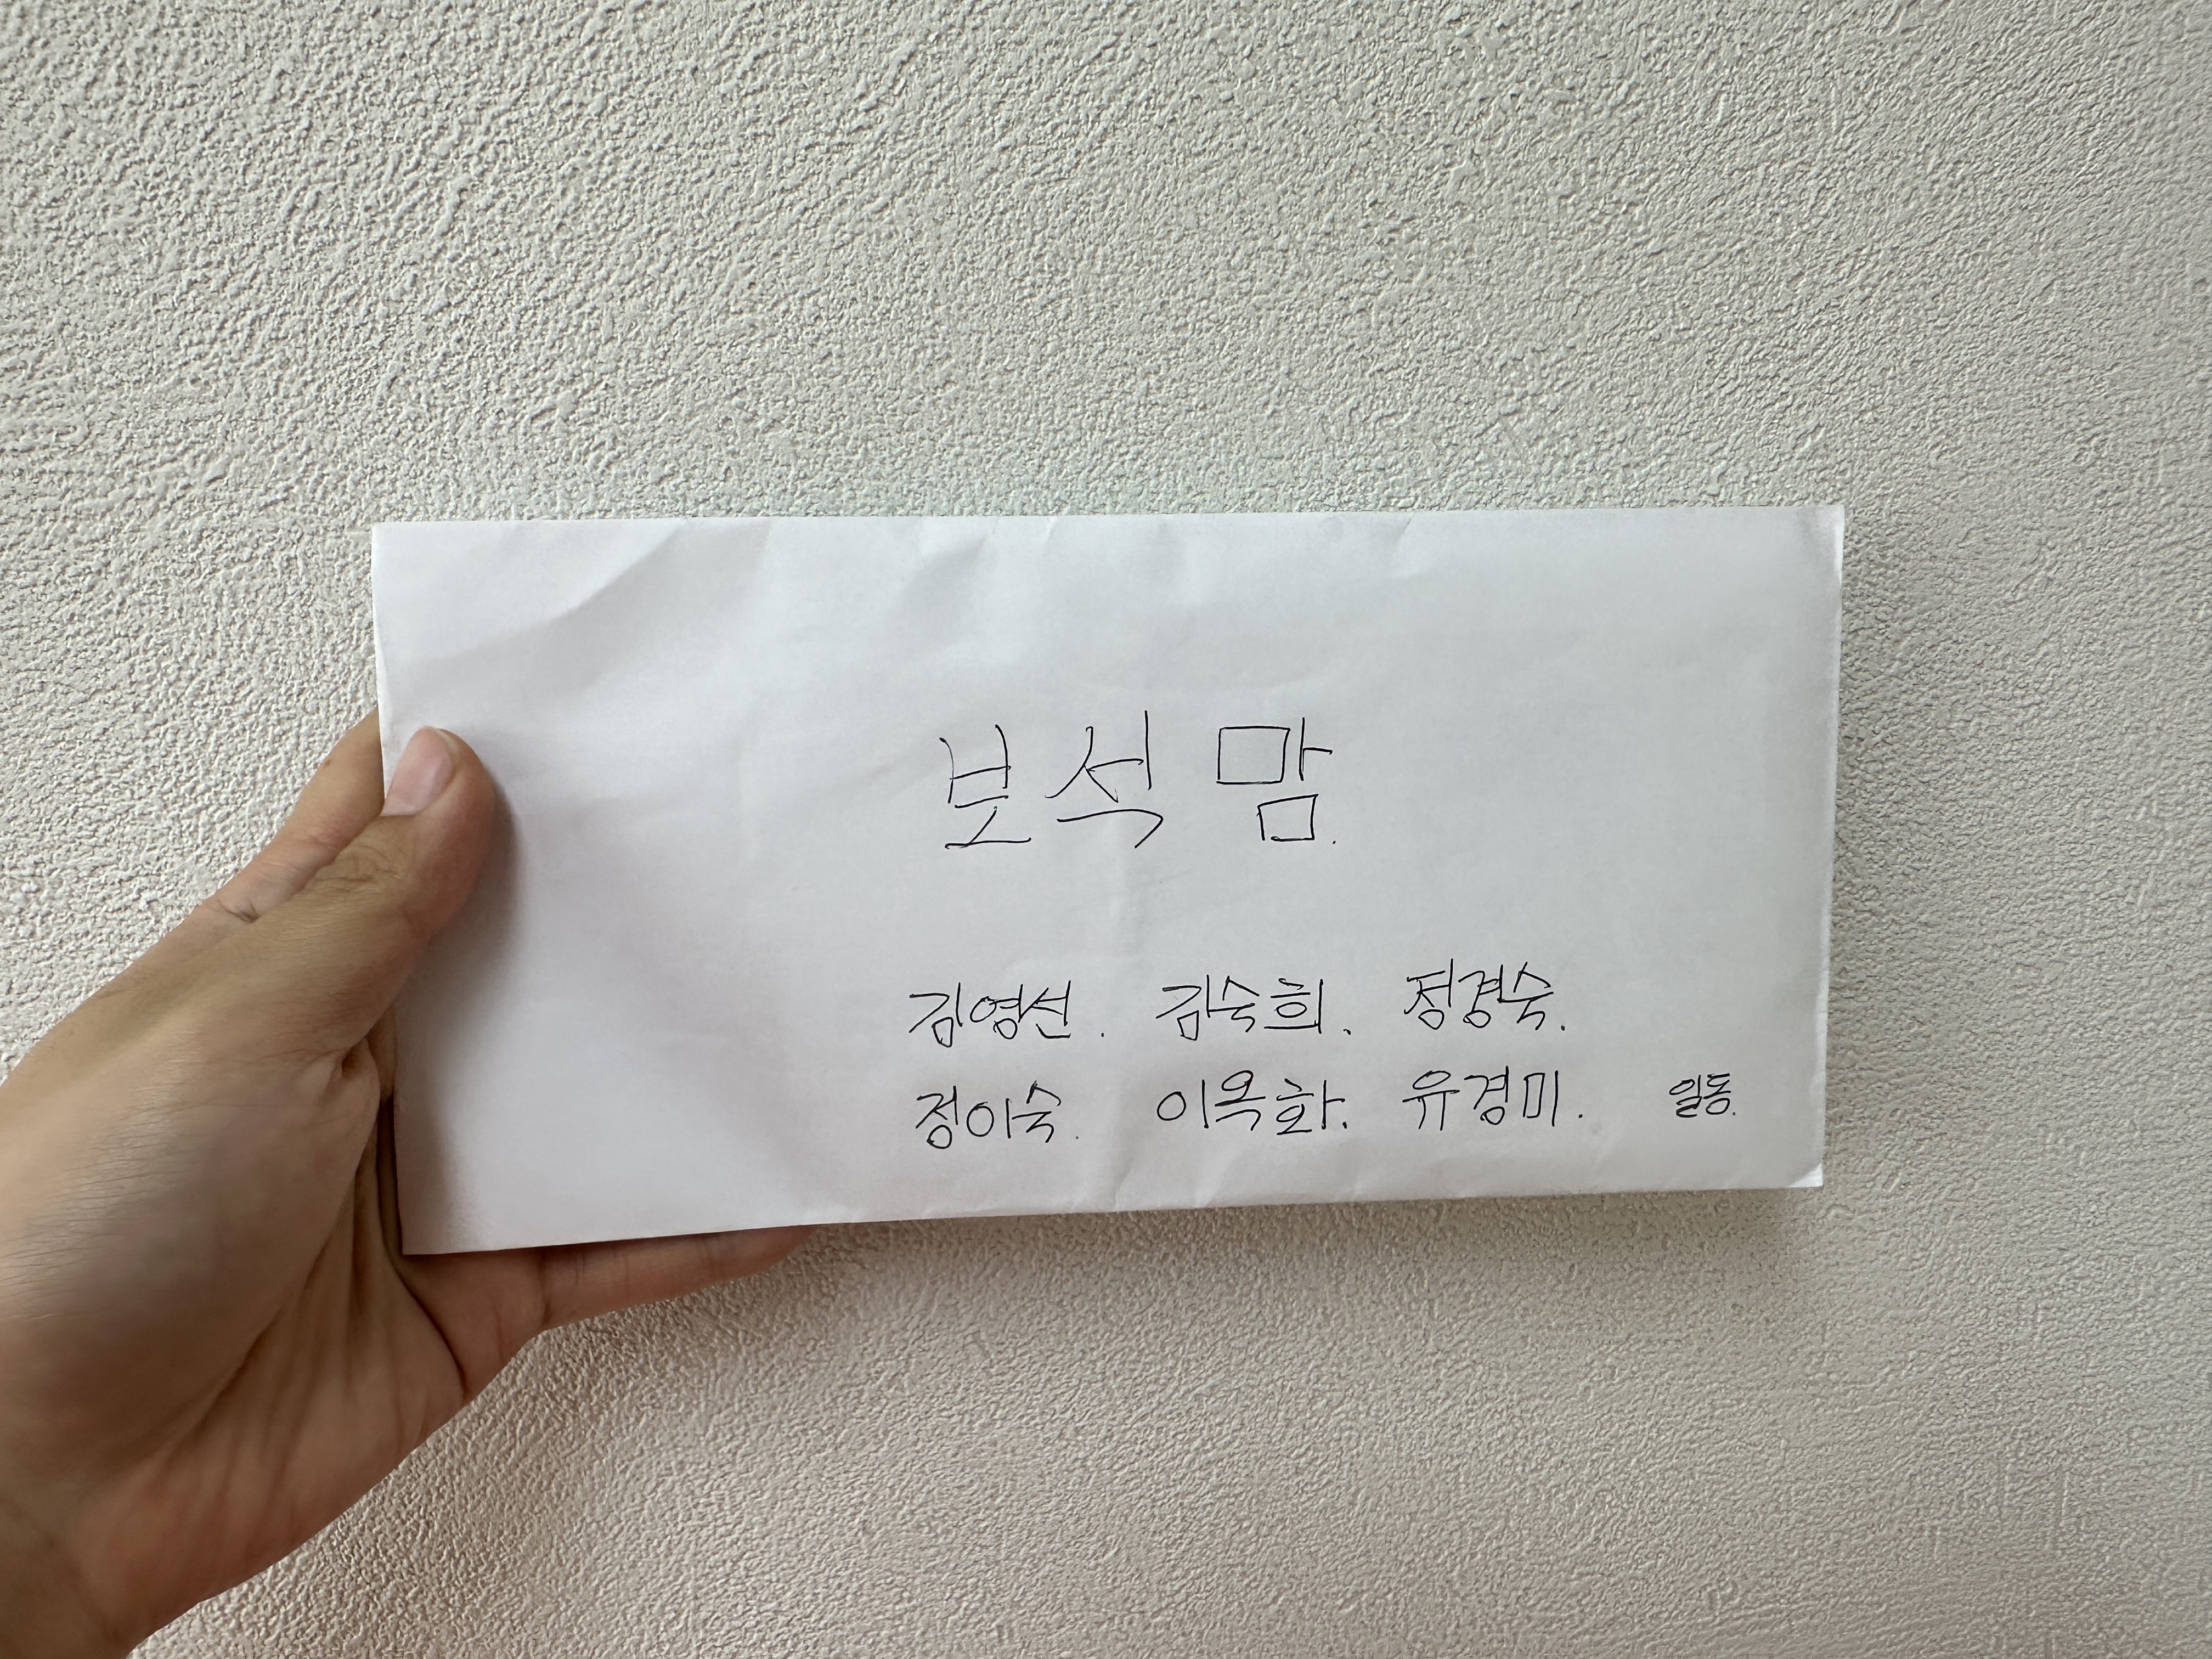 보석 맘.
김영선. 김숙희. 정경숙.
정이숙. 이옥화. 유경미. 일동.